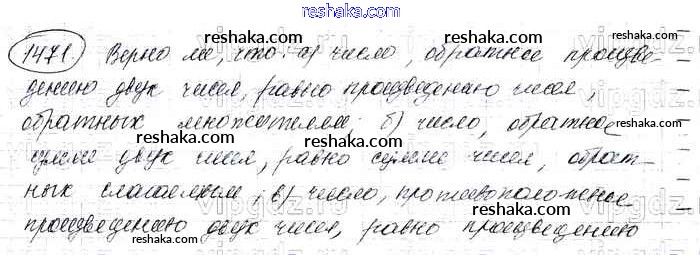 reshaka.com
1471. Верно ли, что: а) число, обратное произве-
дению двух чисел, равно произведению чисел,
обратных множителям; б) число, обратное
сумме двух чисел, равно сумме чисел, обрат-
ных слагаемым; в) число, противоположное
произведению двух чисел, равно произведению
reshaka.com
reshaka.com
reshaka.com
reshaka.com
reshaka.com
reshaka.com
reshaka.com
reshaka.com
reshaka.com